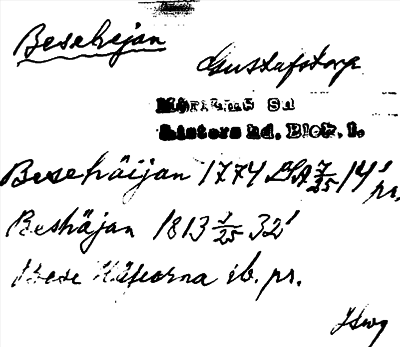 Besehejan
Gustafstorp
Mörrums Sn
Listers hd. Blek. l.
Besehäijan 1774 LSA 7/25 14' pr.
Beshäjan 1813 1/25 32'
Bese Häjorna ib. pr.